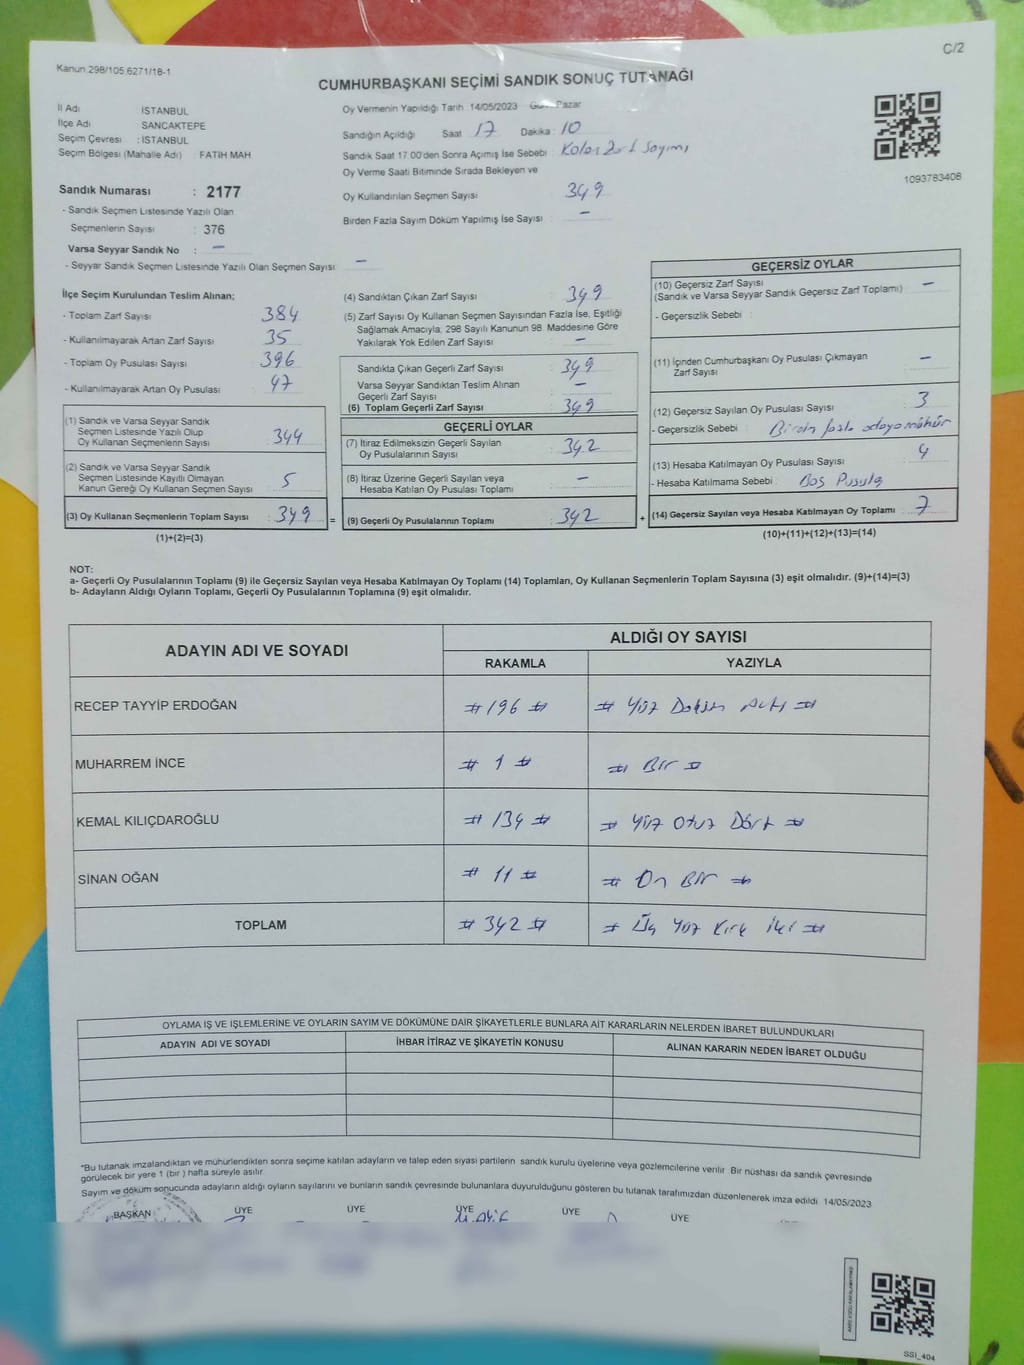 C/2
Kanun 298/105,6271/18-1
CUMHURBAŞKANI SEÇİMİ SANDIK SONUÇ TUTANAĞI
İl Adı İSTANBUL
İlçe Adı SANCAKTEPE
Seçim Çevresi : İSTANBUL
Seçim Bölgesi (Mahalle Adı) : FATİH MAH
Oy Vermenin Yapıldığı Tarih 14/05/2023 Pazar
Sandığın Açıldığı Saat 17 Dakika : 10
Sandık Saat 17.00'den Sonra Açılmış İse Sebebi : Kalan Zarf Sayımı
Oy Verme Saati Bitiminde Sırada Bekleyen ve
Oy Kullandırılan Seçmen Sayısı : 349
Birden Fazla Sayım Döküm Yapılmış İse Sayısı : —
1093783408
Sandık Numarası : 2177
- Sandık Seçmen Listesinde Yazılı Olan
Seçmenlerin Sayısı : 376
Varsa Seyyar Sandık No : —
- Seyyar Sandık Seçmen Listesinde Yazılı Olan Seçmen Sayısı : —
İlçe Seçim Kurulundan Teslim Alınan;
- Toplam Zarf Sayısı : 384
- Kullanılmayarak Artan Zarf Sayısı : 35
- Toplam Oy Pusulası Sayısı : 396
- Kullanılmayarak Artan Oy Pusulası : 47
(1) Sandık ve Varsa Seyyar Sandık
Seçmen Listesinde Yazılı Olup
Oy Kullanan Seçmenlerin Sayısı : 344
(2) Sandık ve Varsa Seyyar Sandık
Seçmen Listesinde Kayıtlı Olmayan
Kanun Gereği Oy Kullanan Seçmen Sayısı : 5
(3) Oy Kullanan Seçmenlerin Toplam Sayısı : 349
(1)+(2)=(3)
(4) Sandıktan Çıkan Zarf Sayısı : 349
(5) Zarf Sayısı Oy Kullanan Seçmen Sayısından Fazla İse, Eşitliği
Sağlamak Amacıyla, 298 Sayılı Kanunun 98. Maddesine Göre
Yakılarak Yok Edilen Zarf Sayısı : —
Sandıkta Çıkan Geçerli Zarf Sayısı : 349
Varsa Seyyar Sandıktan Teslim Alınan
Geçerli Zarf Sayısı : —
(6) Toplam Geçerli Zarf Sayısı : 349
GEÇERLİ OYLAR
(7) İtiraz Edilmeksizin Geçerli Sayılan
Oy Pusulalarının Sayısı : 342
(8) İtiraz Üzerine Geçerli Sayılan veya
Hesaba Katılan Oy Pusulası Toplamı : —
= (9) Geçerli Oy Pusulalarının Toplamı : 342 +
GEÇERSİZ OYLAR
(10) Geçersiz Zarf Sayısı
(Sandık ve Varsa Seyyar Sandık Geçersiz Zarf Toplamı) : —
- Geçersizlik Sebebi :
(11) İçinden Cumhurbaşkanı Oy Pusulası Çıkmayan
Zarf Sayısı : —
(12) Geçersiz Sayılan Oy Pusulası Sayısı : 3
- Geçersizlik Sebebi : Birden fazla adaya mühür
(13) Hesaba Katılmayan Oy Pusulası Sayısı : 4
- Hesaba Katılmama Sebebi : Boş Pusula
(14) Geçersiz Sayılan veya Hesaba Katılmayan Oy Toplamı : 7
(10)+(11)+(12)+(13)=(14)
NOT:
a- Geçerli Oy Pusulalarının Toplamı (9) ile Geçersiz Sayılan veya Hesaba Katılmayan Oy Toplamı (14) Toplamları, Oy Kullanan Seçmenlerin Toplam Sayısına (3) eşit olmalıdır. (9)+(14)=(3)
b- Adayların Aldığı Oyların Toplamı, Geçerli Oy Pusulalarının Toplamına (9) eşit olmalıdır.
ADAYIN ADI VE SOYADI ALDIĞI OY SAYISI
RAKAMLA YAZIYLA
RECEP TAYYİP ERDOĞAN # 196 # # Yüz Doksan Altı #
MUHARREM İNCE # 1 # # Bir #
KEMAL KILIÇDAROĞLU # 134 # # Yüz Otuz Dört #
SİNAN OĞAN # 11 # # On Bir #
TOPLAM # 342 # # Üç Yüz Kırk İki #
OYLAMA İŞ VE İŞLEMLERİNE VE OYLARIN SAYIM VE DÖKÜMÜNE DAİR ŞİKAYETLERLE BUNLARA AİT KARARLARIN NELERDEN İBARET BULUNDUKLARI
ADAYIN ADI VE SOYADI İHBAR İTİRAZ VE ŞİKAYETİN KONUSU ALINAN KARARIN NEDEN İBARET OLDUĞU
*Bu tutanak imzalandıktan ve mühürlendikten sonra seçime katılan adayların ve talep eden siyasi partilerin sandık kurulu üyelerine veya gözlemcilerine verilir. Bir nüshası da sandık çevresinde
görülecek bir yere 1 (bir ) hafta süreyle asılır.
Sayım ve döküm sonucunda adayların aldığı oyların sayılarını ve bunların sandık çevresinde bulunanlara duyurulduğunu gösteren bu tutanak tarafımızdan düzenlenerek imza edildi. 14/05/2023
BAŞKAN ÜYE ÜYE ÜYE ÜYE ÜYE
SSİ_404